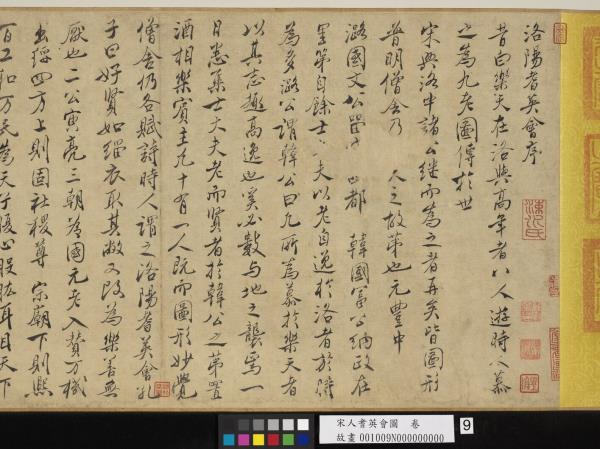 洛陽耆英會序
昔白樂天在洛與高年者八人遊時人慕
之為九老圖傳於世
宋興洛中諸公繼而為之者再矣皆圖形
普明僧舍乃 之故第也元豐中
潞國文公留 都 韓國富公納政在
里第自餘士 夫以老自逸於洛者於時
為多潞公謂韓公曰凡所為慕於樂天者
以其志趣高逸也奚必數与地之襲焉一
日悉集士大夫老而賢者於韓公之第置
酒相樂賓主凡十有一人既而圖形妙覺
僧舍仍各賦詩時人謂之洛陽耆英會孔
子曰好賢如緇衣取其敝又改為樂善無
厭也二公寅亮三朝為國元老入贊万機
出綏四方上則固社稷尊 宗廟下則熙
百工和万民為天子腹心股肱耳目天下
陳氏
宋人耆英會圖 卷
故畫 001009N000000000
9